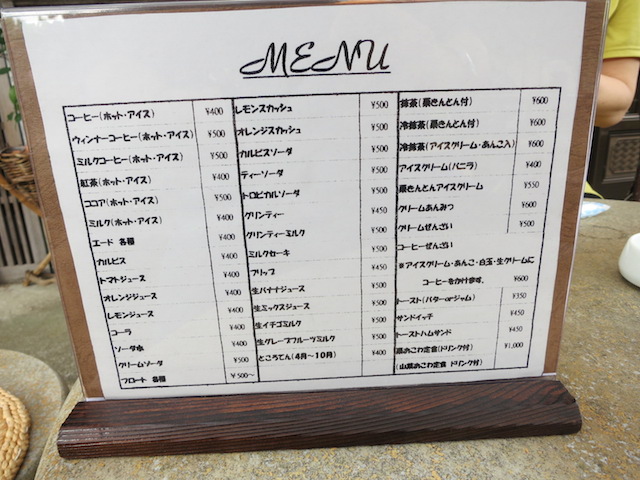 MENU
コーヒー(ホット・アイス) ¥400
ウィンナーコーヒー(ホット・アイス) ¥500
ミルクコーヒー(ホット・アイス) ¥500
紅茶(ホット・アイス) ¥400
ココア(ホット・アイス) ¥500
ミルク(ホット・アイス) ¥400
エード 各種 ¥400
カルピス ¥400
トマトジュース ¥400
オレンジジュース ¥400
レモンジュース ¥400
コーラ ¥400
ソーダ水 ¥400
クリームソーダ ¥500
フロート 各種 ¥500~
レモンスカッシュ ¥500
オレンジスカッシュ ¥500
カルピスソーダ ¥500
ティーソーダ ¥500
トロピカルソーダ ¥500
グリンティー ¥450
グリンティーミルク ¥500
ミルクセーキ ¥500
フリップ ¥450
生バナナジュース ¥500
生ミックスジュース ¥500
生イチゴミルク ¥500
生グレープフルーツミルク ¥500
ところてん(4月~10月) ¥400
抹茶(栗きんとん付) ¥600
冷抹茶(栗きんとん付) ¥600
冷抹茶(アイスクリーム・あんこ入) ¥600
アイスクリーム(バニラ) ¥400
栗きんとんアイスクリーム ¥550
クリームあんみつ ¥600
クリームぜんざい ¥500
コーヒーぜんざい
※アイスクリーム・あんこ・白玉・生クリームに
コーヒーをかけます。 ¥600
トースト(バターorジャム) ¥350
サンドイッチ ¥450
トーストハムサンド ¥450
栗おこわ定食(ドリンク付) ¥1,000
(山菜おこわ定食 ドリンク付)